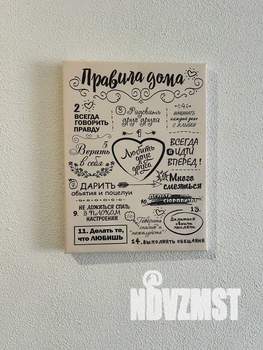 Правила дома
2 ВСЕГДА
ГОВОРИТЬ
ПРАВДУ
5 Радовать
друг друга
4.
НАЧИНАТЬ
каждый день
с улыбки
5
Верить
в себя
1
Любить
друг
друга
ВСЕГДА
ИДТИ
ВПЕРЕД!
ДАРИТЬ
объятия и поцелуи
Много
смеяться
9. НЕ ЛОЖИТЬСЯ СПАТЬ
В ПЛОХОМ
НАСТРОЕНИИ
ДЕЛАТЬ
СЮРПРИЗЫ
Говорить
спасибо и
пожалуйста
11. Делать то,
что ЛЮБИШЬ
14. ВЫПОЛНЯТЬ ОБЕЩАНИЯ
NDVZMST